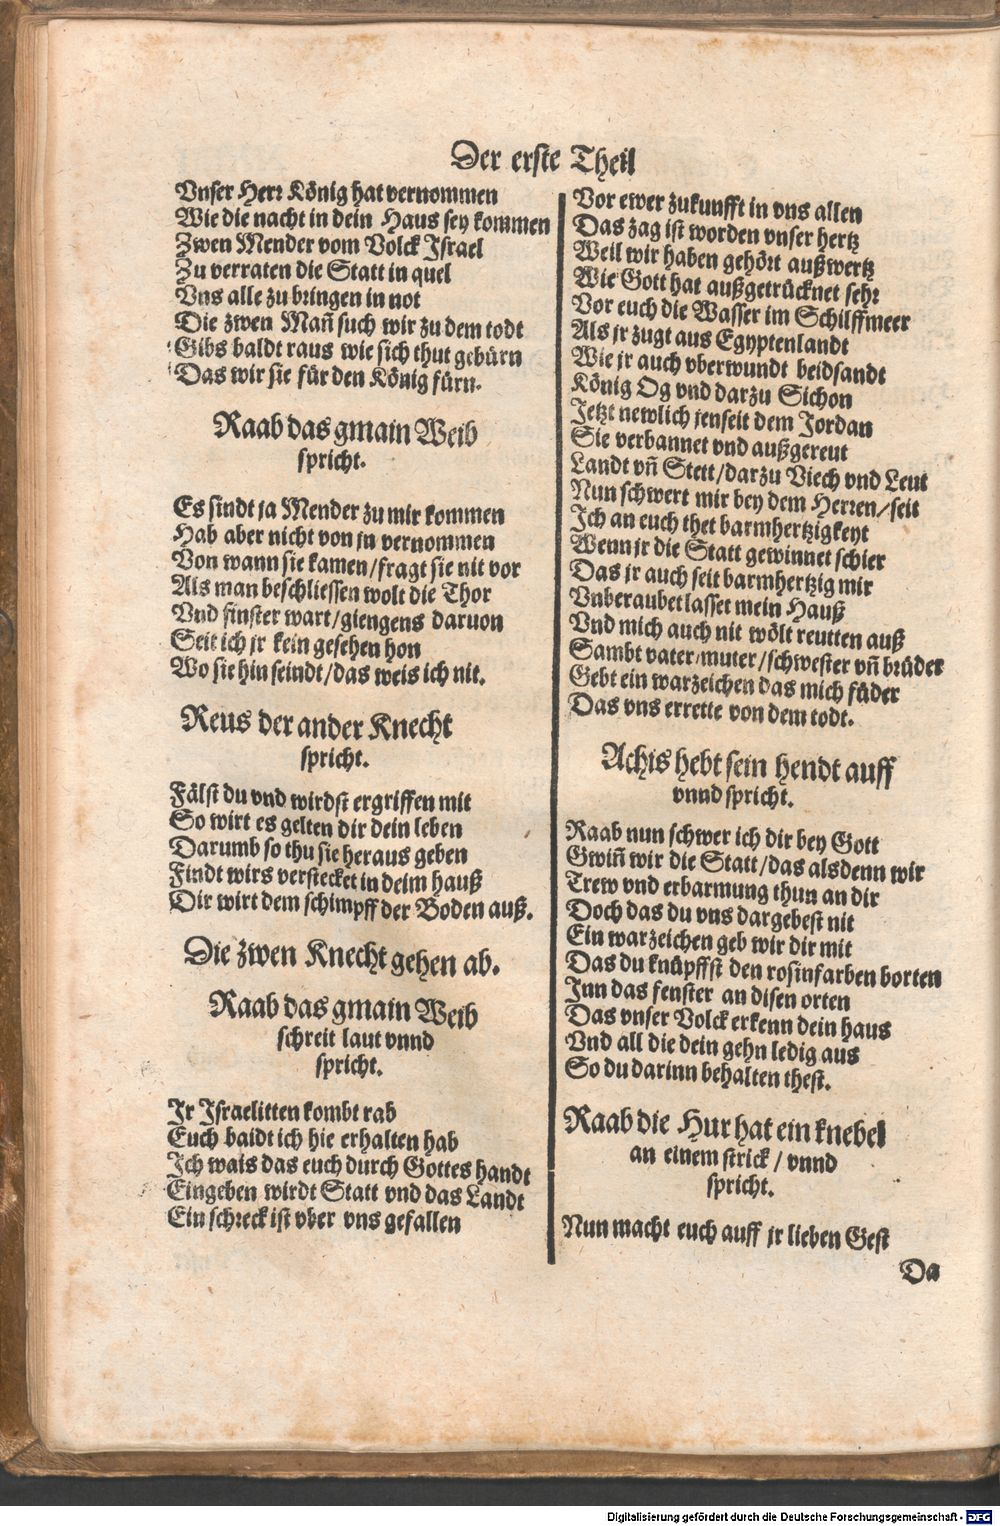 Der erste Theil
Vnser Herr König hat vernommen
Wie die nacht in dein Haus sey kommen
Zwen Mender vom Volck Israel
Zu verraten die Statt in quel
Vns alle zu bringen in not
Die zwen Mañ such wir zu dem todt
Gibs baldt raus wie sich thut gebürn
Das wir sie für den König fürn.
Raab das gmain Weib
spricht.
Es sindt ja Mender zu mir kommen
Hab aber nicht von jn vernommen
Von wann sie kamen/fragt sie nit vor
Als man beschliessen wolt die Thor
Vnd finster wart/giengens daruon
Seit ich jr kein gesehen hon
Wo sie hin seindt/das weis ich nit.
Reus der ander Knecht
spricht.
Fälst du vnd wirdst ergriffen mit
So wirt es gelten dir dein leben
Darumb so thu sie heraus geben
Findt wirs verstecket in deim hauß
Dir wirt dem schimpff der Boden auß.
Die zwen Knecht gehen ab.
Raab das gmain Weib
schreit laut vnnd
spricht.
Jr Israelitten kombt rab
Euch baidt ich hie erhalten hab
Ich wais das euch durch Gottes handt
Eingeben wirdt Statt vnd das Landt
Ein schreck ist vber vns gefallen
Vor ewer zukunfft in vns allen
Das zag ist worden vnser hertz
Weil wir haben gehört außwertz
Wie Gott hat außgetrücknet sehr
Vor euch die Wasser im Schilffmeer
Als jr zugt aus Egyptenlandt
Wie jr auch vberwundt beidsandt
König Og vnd darzu Sichon
Jetzt newlich jenseit dem Jordan
Sie verbannet vnd außgereut
Landt vñ Stett/darzu Viech vnd Leut
Nun schwert mir bey dem Herren/seit
Ich an euch thet barmhertzigkeyt
Wenn jr die Statt gewinnet schier
Das jr auch seit barmhertzig mir
Vnberaubet lasset mein Hauß
Vnd mich auch nit wölt reutten auß
Sambt vater/muter/schwester vñ brüder
Gebt ein warzeichen das mich füder
Das vns errette von dem todt.
Achis hebt sein hendt auff
vnnd spricht.
Raab nun schwer ich dir bey Gott
Gwiñ wir die Statt/das alsdenn wir
Trew vnd erbarmung thun an dir
Doch das du vns dargebest nit
Ein warzeichen geb wir dir mit
Das du knüpffst den rosinfarben borten
Inn das fenster an disen orten
Das vnser Volck erkenn dein haus
Vnd all die dein gehn ledig aus
So du darinn behalten thest.
Raab die Hur hat ein knebel
an einem strick / vnnd
spricht.
Nun macht euch auff jr lieben Gest
Da
Digitalisierung gefördert durch die Deutsche Forschungsgemeinschaft - DFG